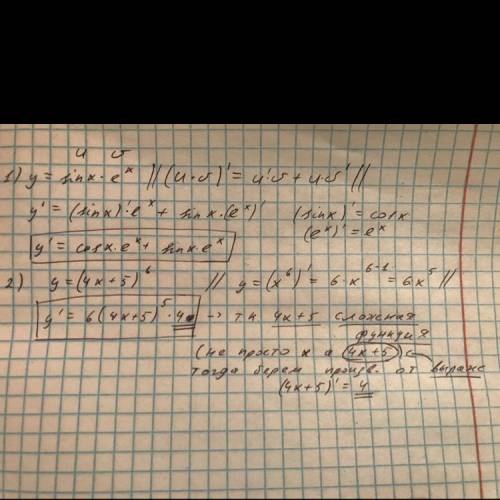 u v
1) y = sinx · e^x // (u · v)' = u'v + u v' //
y' = (sinx)' · e^x + sinx · (e^x)' (sinx)' = cosx
(e^x)' = e^x
y' = cosx · e^x + sinx · e^x
2) y = (4x+5)^6 // y = (x^6)' = 6 · x^6-1 = 6 · x^5 //
y' = 6(4x+5)^5 · 4 → тк 4x+5 сложная
функция
(не просто x а (4x+5))
тогда берем произв. от выраже
(4x+5)' = 4